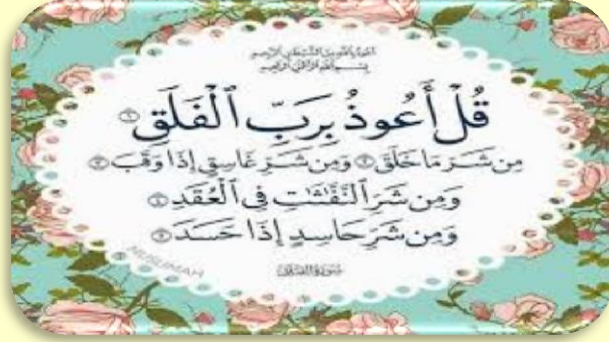 أعوذ بالله من الشيطان الرجيم
بسم الله الرحمن الرحيم
قُلْ أَعُوذُ بِرَبِّ ٱلْفَلَقِ ۝١
مِن شَرِّ مَا خَلَقَ ۝٢ وَمِن شَرِّ غَاسِقٍ إِذَا وَقَبَ ۝٣
وَمِن شَرِّ ٱلنَّفَّٰثَٰتِ فِي ٱلْعُقَدِ ۝٤
وَمِن شَرِّ حَاسِدٍ إِذَا حَسَدَ ۝٥
MUSLIMAH
سورة الفلق